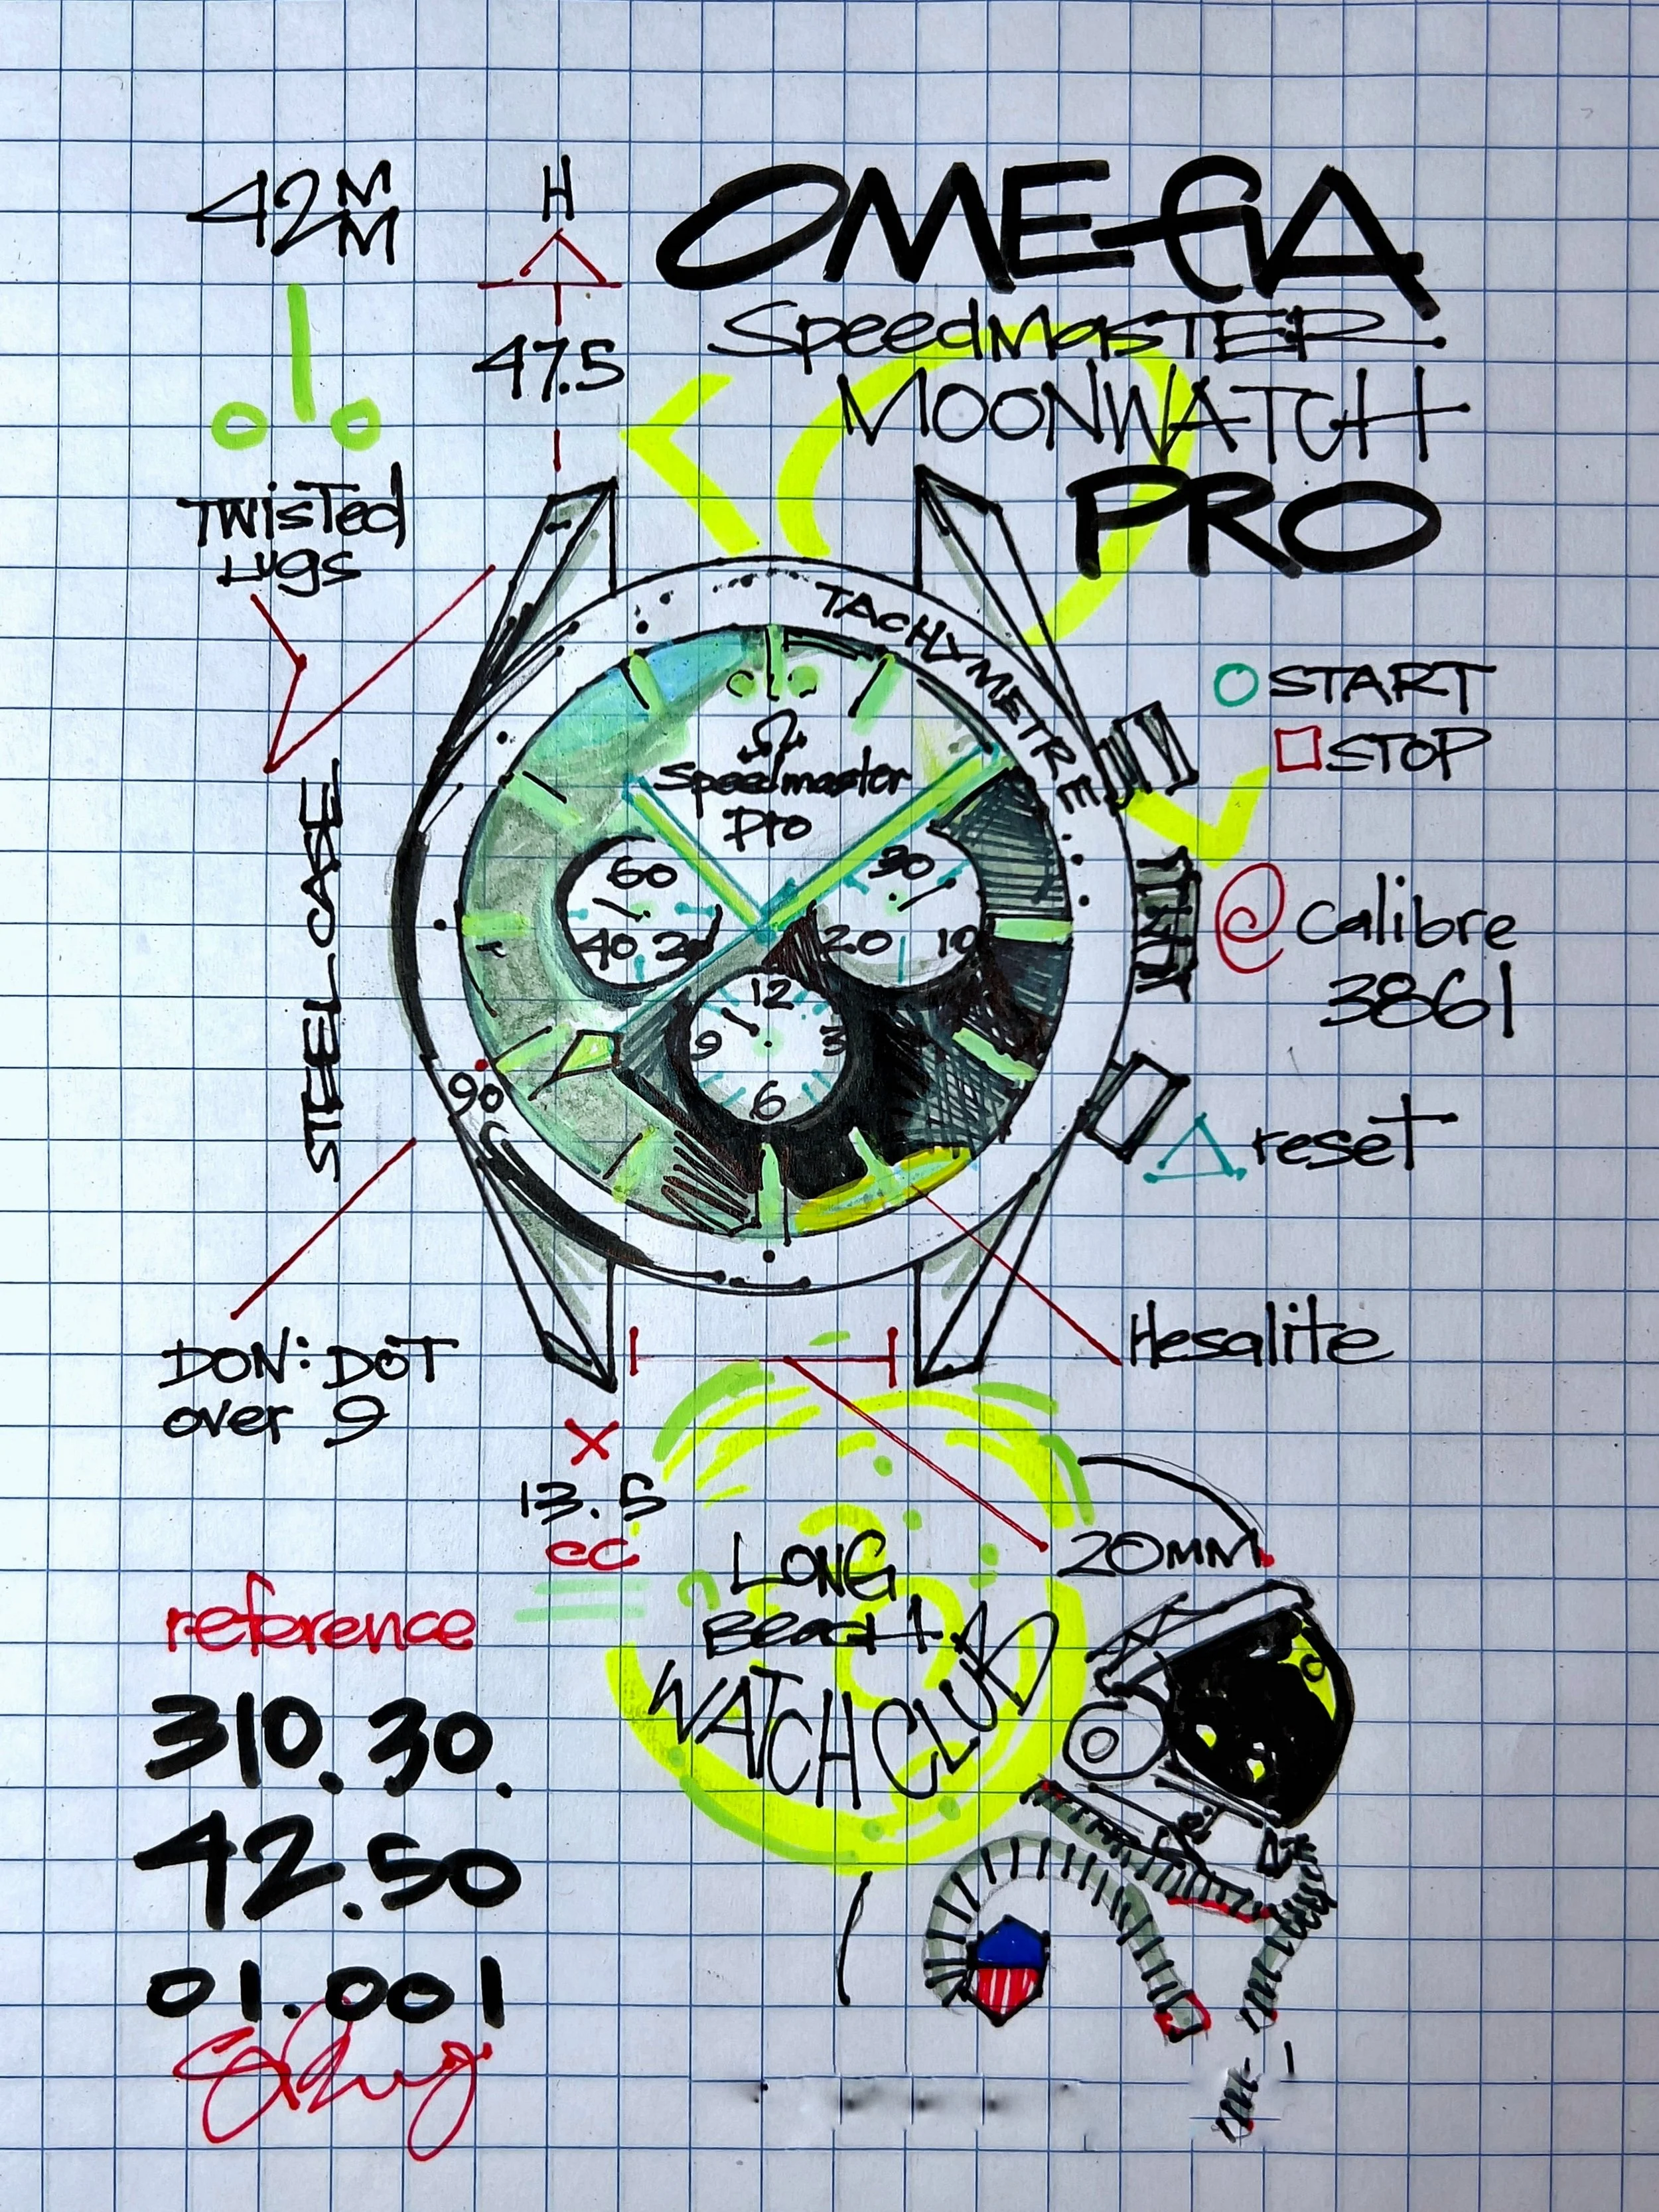 42MM
H
47.5
OMEGA
SpeedMASTER
MOONWATCH
PRO
TWisTed
LUgs
TACHYMETRE
START
STOP
STEEL CASE
Speedmaster
Pro
60
40 20
30
20 10
12
9 3
6
90
@ Calibre
3861
reset
DON: DOT
over 9
Hesalite
X
13.5
20MM
LONG
BEACH
WATCH CLUB
reference
310.30.
42.50
01.001